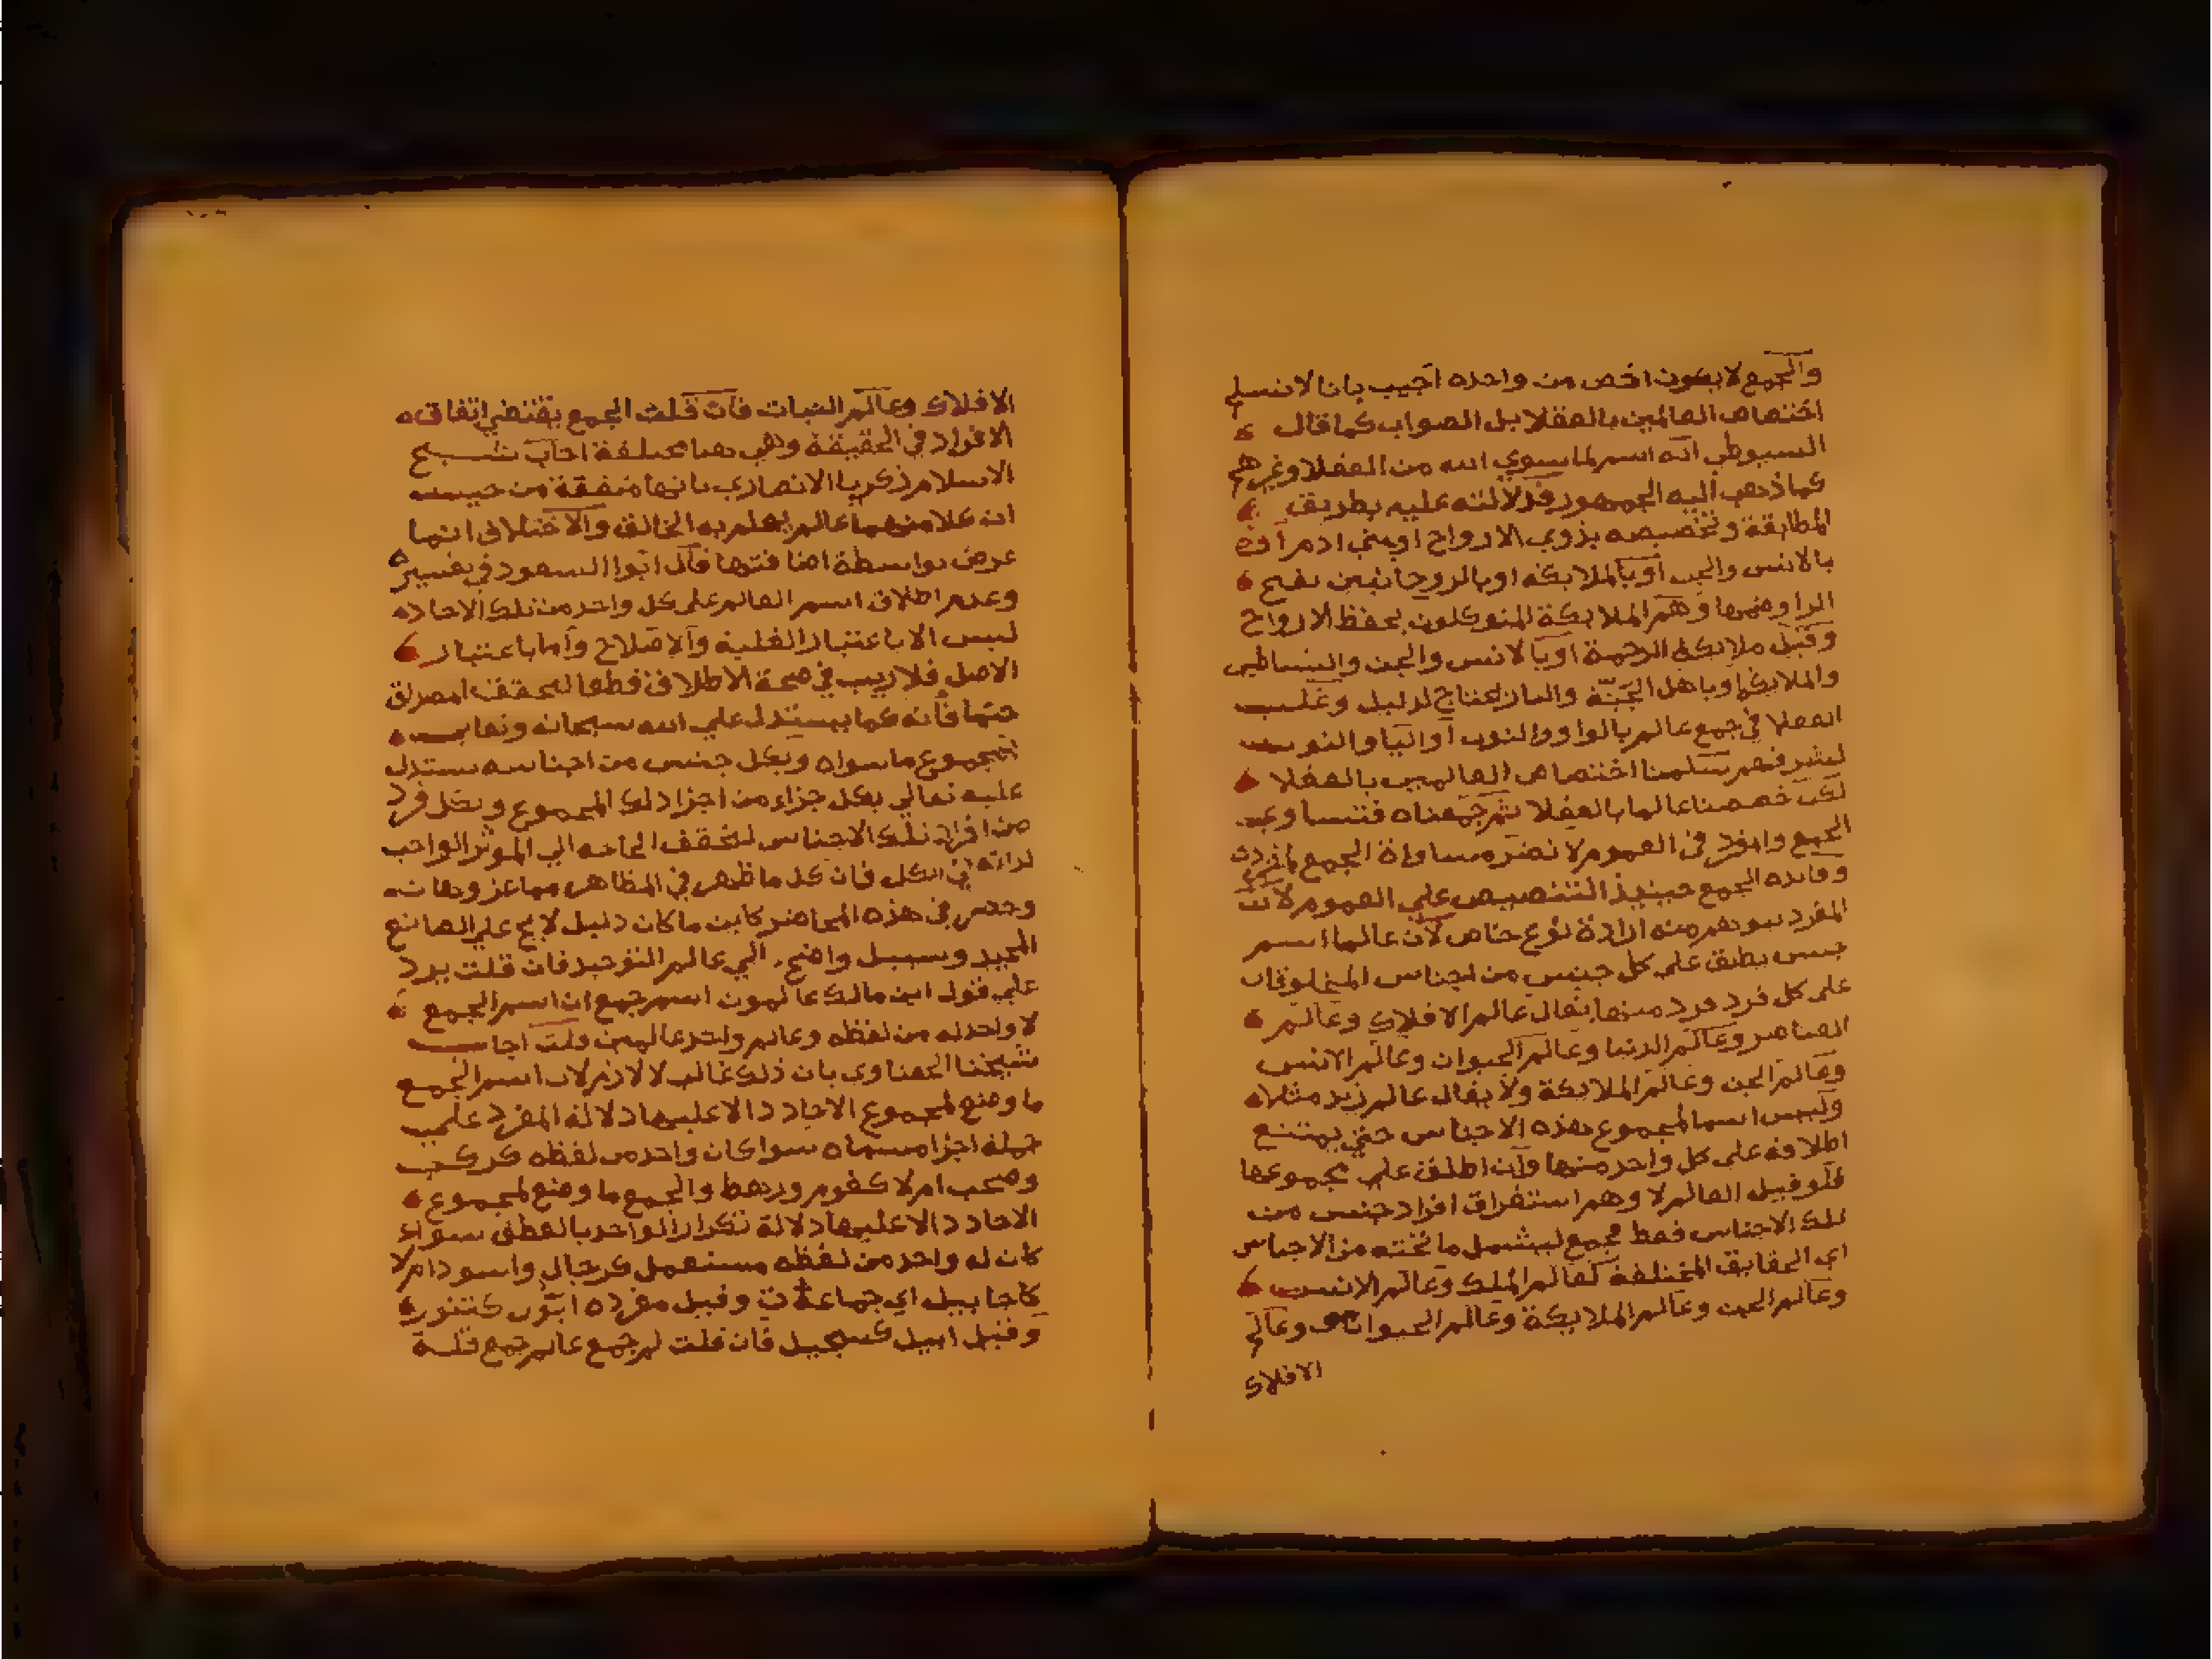 والجمع لا يكون اخص من واحده اجيب بانا لا نسلم
اختصاص العالمين بالعقلا بل الصواب كما قال
السيوطي انه اسم لما سوي الله من العقلا وغيرهم
كما ذهب اليه الجمهور فدلالته عليه بطريق
المطابقة وتخصيصه بذوي الارواح او ببني ادم او
بالانس والجن او بالملايكه او بالروحانيين بفتح
الرا وضمها وهم الملايكة المتوكلون بحفظ الارواح
وقيل ملايكة الرحمة او بالانس والجن والشياطين
والملايكه او باهل الجنة والنار يحتاج لدليل وغلب
العقلا في جمع عالم بالواو والنون او اليا والنون
لشرفهم سلمنا اختصاص العالمين بالعقلا
لكن خصصنا عالما بالعقلا ثم جمعناه فتساويا
الجمع والمفرد في العموم لا تضر مساواة الجمع لمفرده
وفايده الجمع حينيذ التنصيص علي العموم لان
المفرد يتوهم منه ارادة نوع خاص لان عالما اسم
جنس يطلق علي كل جنس من اجناس المخلوقات
علي كل فرد فرد منها يقال عالم الافلاك وعالم
العناصر وعالم الدنيا وعالم الحيوان وعالم الانس
وعالم الجن وعالم الملايكة ولا يقال عالم زيد مثلا
وليس اسما لمجموع هذه الاجناس حتي يمتنع
اطلاقه علي كل واحد منها وان اطلق علي مجموعها
فلو قيل العالم لا وهم استغراق افراد جنس من
تلك الاجناس فقط فجمع ليشمل ما تحته من الاجناس
اي الحقايق المختلفة كعالم الملك وعالم الانس
وعالم الجن وعالم الملايكة وعالم الحيوانات وعالم
الافلاك
الافلاك وعالم النبات فان قلت الجمع يقتضي اتفاق
الافراد في الحقيقة وهي هنا مختلفة اجاب شيخ
الاسلام زكريا الانصاري بانها متفقة من حيث
ان كلا منهما عالم يعلم به الخالق والاختلاف انما
عرض بواسطة اضافتها قال ابوا السعود في تفسيره
وعدم اطلاق اسم العالم علي كل واحد من تلك الاحاد
ليس الا باعتبار الغلبة والاصلاح واما باعتبار
الاصل فلا ريب في صحة الاطلاق قطعا لتحقق المصداق
حتما فانه كما يستدل علي الله سبحانه وتعالي
بمجموع ما سواه وبكل جنس من اجناسه يستدل
عليه تعالي بكل جزاء من اجزا ذلك المجموع وبكل فرد
من افراد تلك الاجناس لتحقق الحاجه الي الموثر الواجب
لذاته في الكل فان كل ما ظهر في المظاهر مما عز وهان
وحضر في هذه المحاضر كاين ما كان دليل لايح علي الصانع
المجيد وسبيل واضح الي عالم التوحيد فان قلت يرد
علي قول ابن مالك عالمون اسم جمع ان اسم الجمع
لا واحد له من لفظه وعالم واحد عالمين قلت اجاب
شيخنا الحفناوي بان ذلك غالب لا لازم لان اسم الجمع
ما وضع لمجموع الاحاد دالا عليها دلالة المفرد علي
جملة اجزا مسماه سوا كان واحد من لفظه كركب
وصحب ام لا كقوم ورهط والجمع ما وضع لمجموع
الاحاد دالا عليها دلالة تكرار الواحد بالعطف سواء
كان له واحد من لفظه مستعمل كرجال واسود ام لا
كابابيل اي جماعات وقيل مفرده ابول كتنور
وقيل ابيل كسجيل فان قلت لم جمع عالم جمع قلة